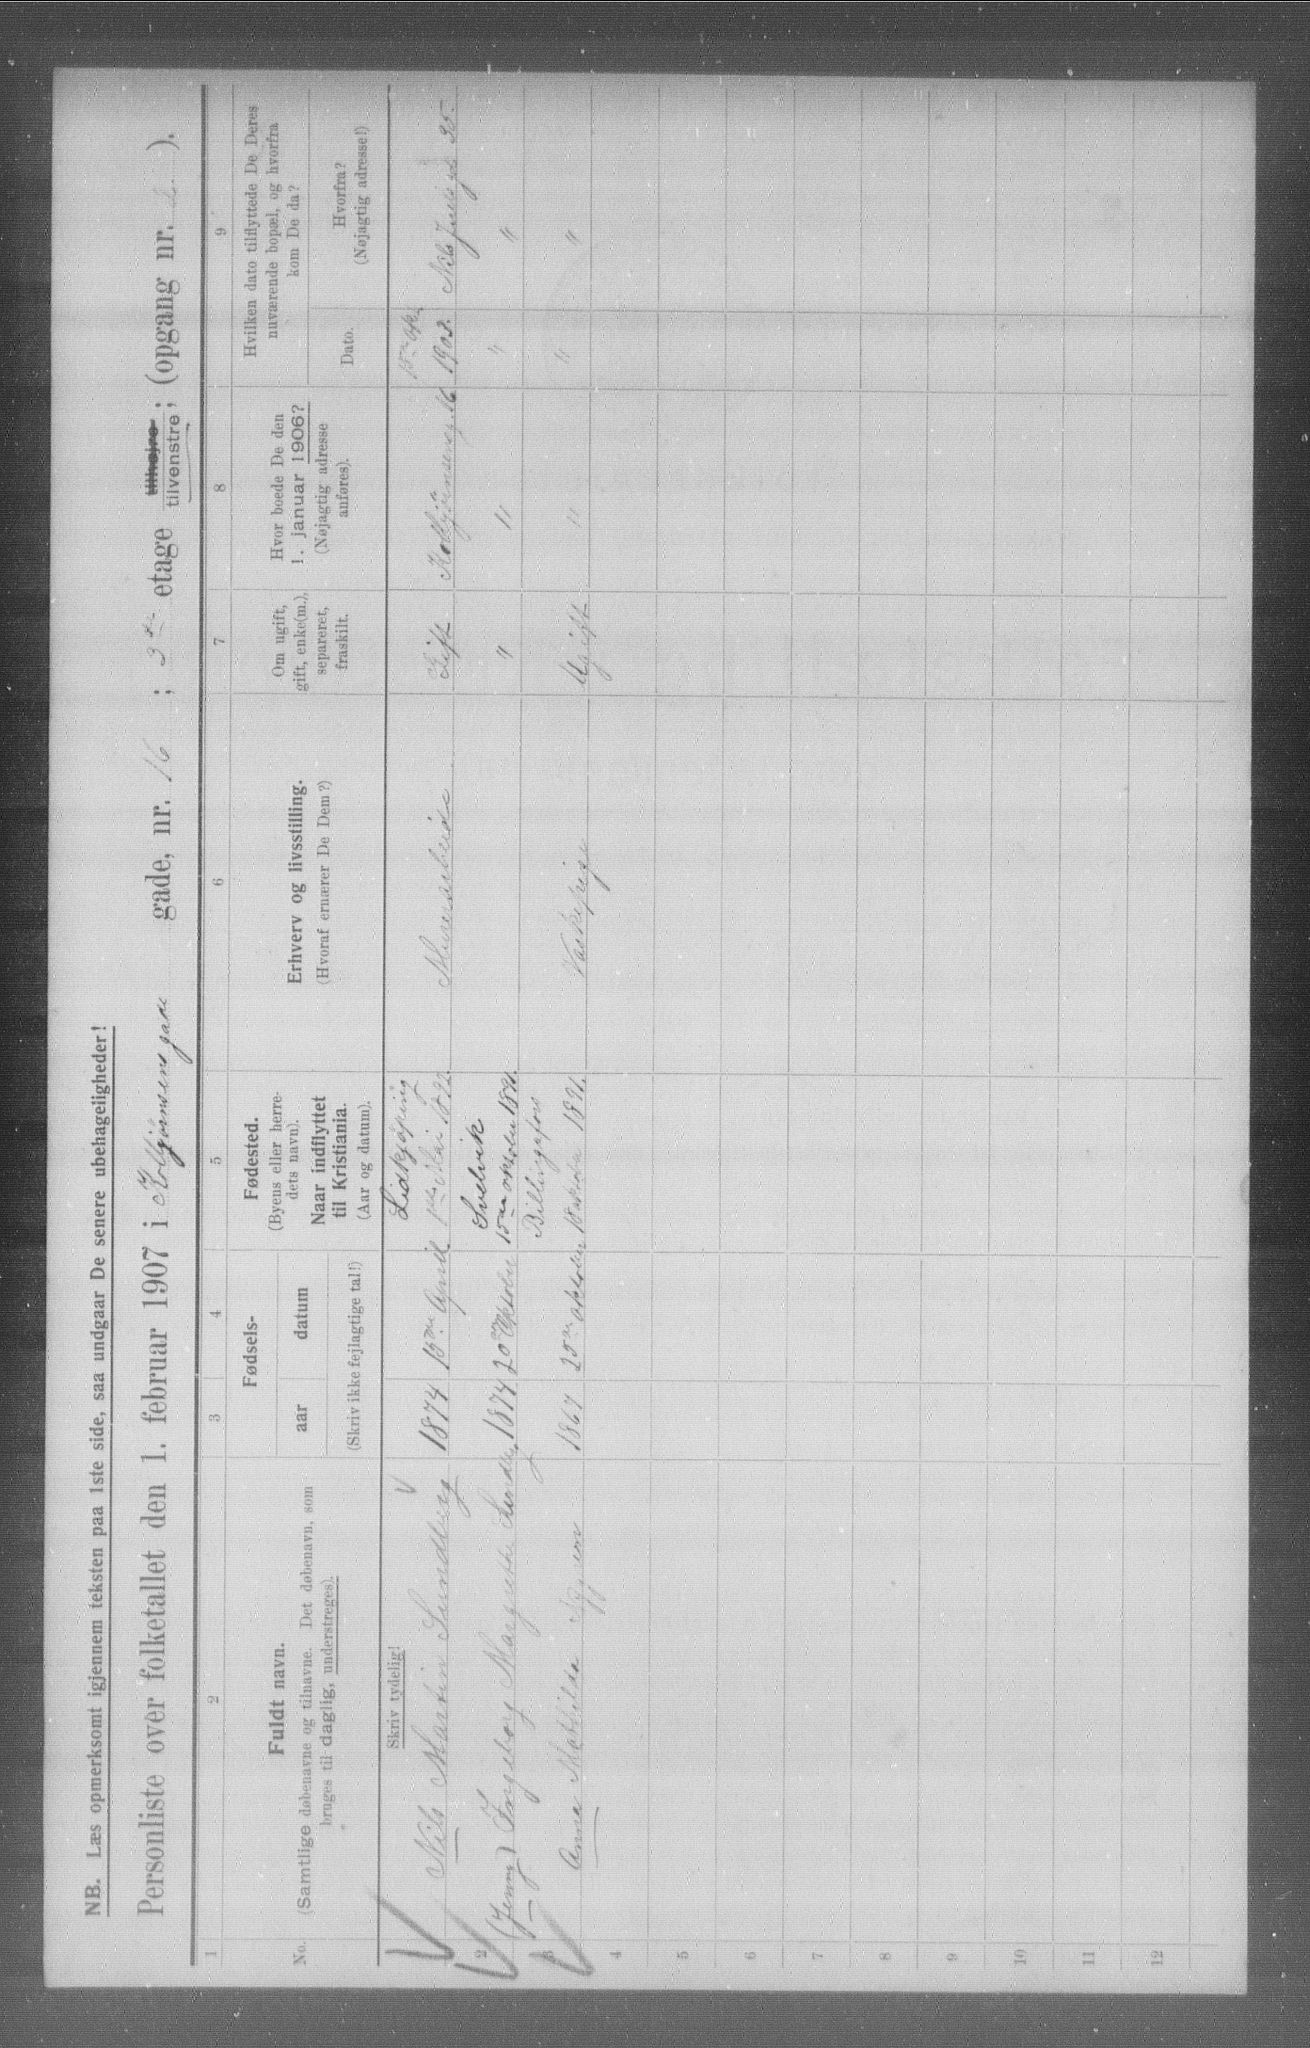 NB. Læs opmerksomt igjennem teksten paa 1ste side, saa undgaar De senere ubehageligheder!
Personliste over folketallet den 1. februar 1907 i Kolbjørnsens gade gade, nr. 16 ; 3die etage tilhøjre tilvenstre ; (opgang nr. ).
1 2 3 4 5 6 7 8 9
No.
Fuldt navn.
(Samtlige døbenavne og tilnavne. Det døbenavn, som
bruges til daglig, understreges).
Fødsels-
aar datum
(Skriv ikke fejlagtige tal!)
Fødested.
(Byens eller herre-
dets navn).
Naar indflyttet
til Kristiania.
(Aar og datum).
Erhverv og livsstilling.
(Hvoraf ernærer De Dem?)
Om ugift,
gift, enke(m.),
separeret,
fraskilt.
Hvor boede De den
1. januar 1906?
(Nøjagtig adresse
anføres).
Hvilken dato tilflyttede De Deres
nuværende bopæl, og hvorfra
kom De da?
Dato.
Hvorfra?
(Nøjagtig adresse!)
Skriv tydelig!
Nils Martin Sundberg 1874 15de April Lidkjöping 1ste Mai 1892 Murerarbeider Gift Kolbjørnsensg. 16 15de Okt. 1902. Nils Juels gt 35.
2 (Jenny) Ingeborg Margrethe Sundberg 1874 20de Oktober Svelvik 15de oktober 1891. " " " "
3 Anna Mathilda 1867 25de oktober Billingsfors 18 oktober 1891. Vaskepige Ugift " " "
4
5
6
7
8
9
10
11
12